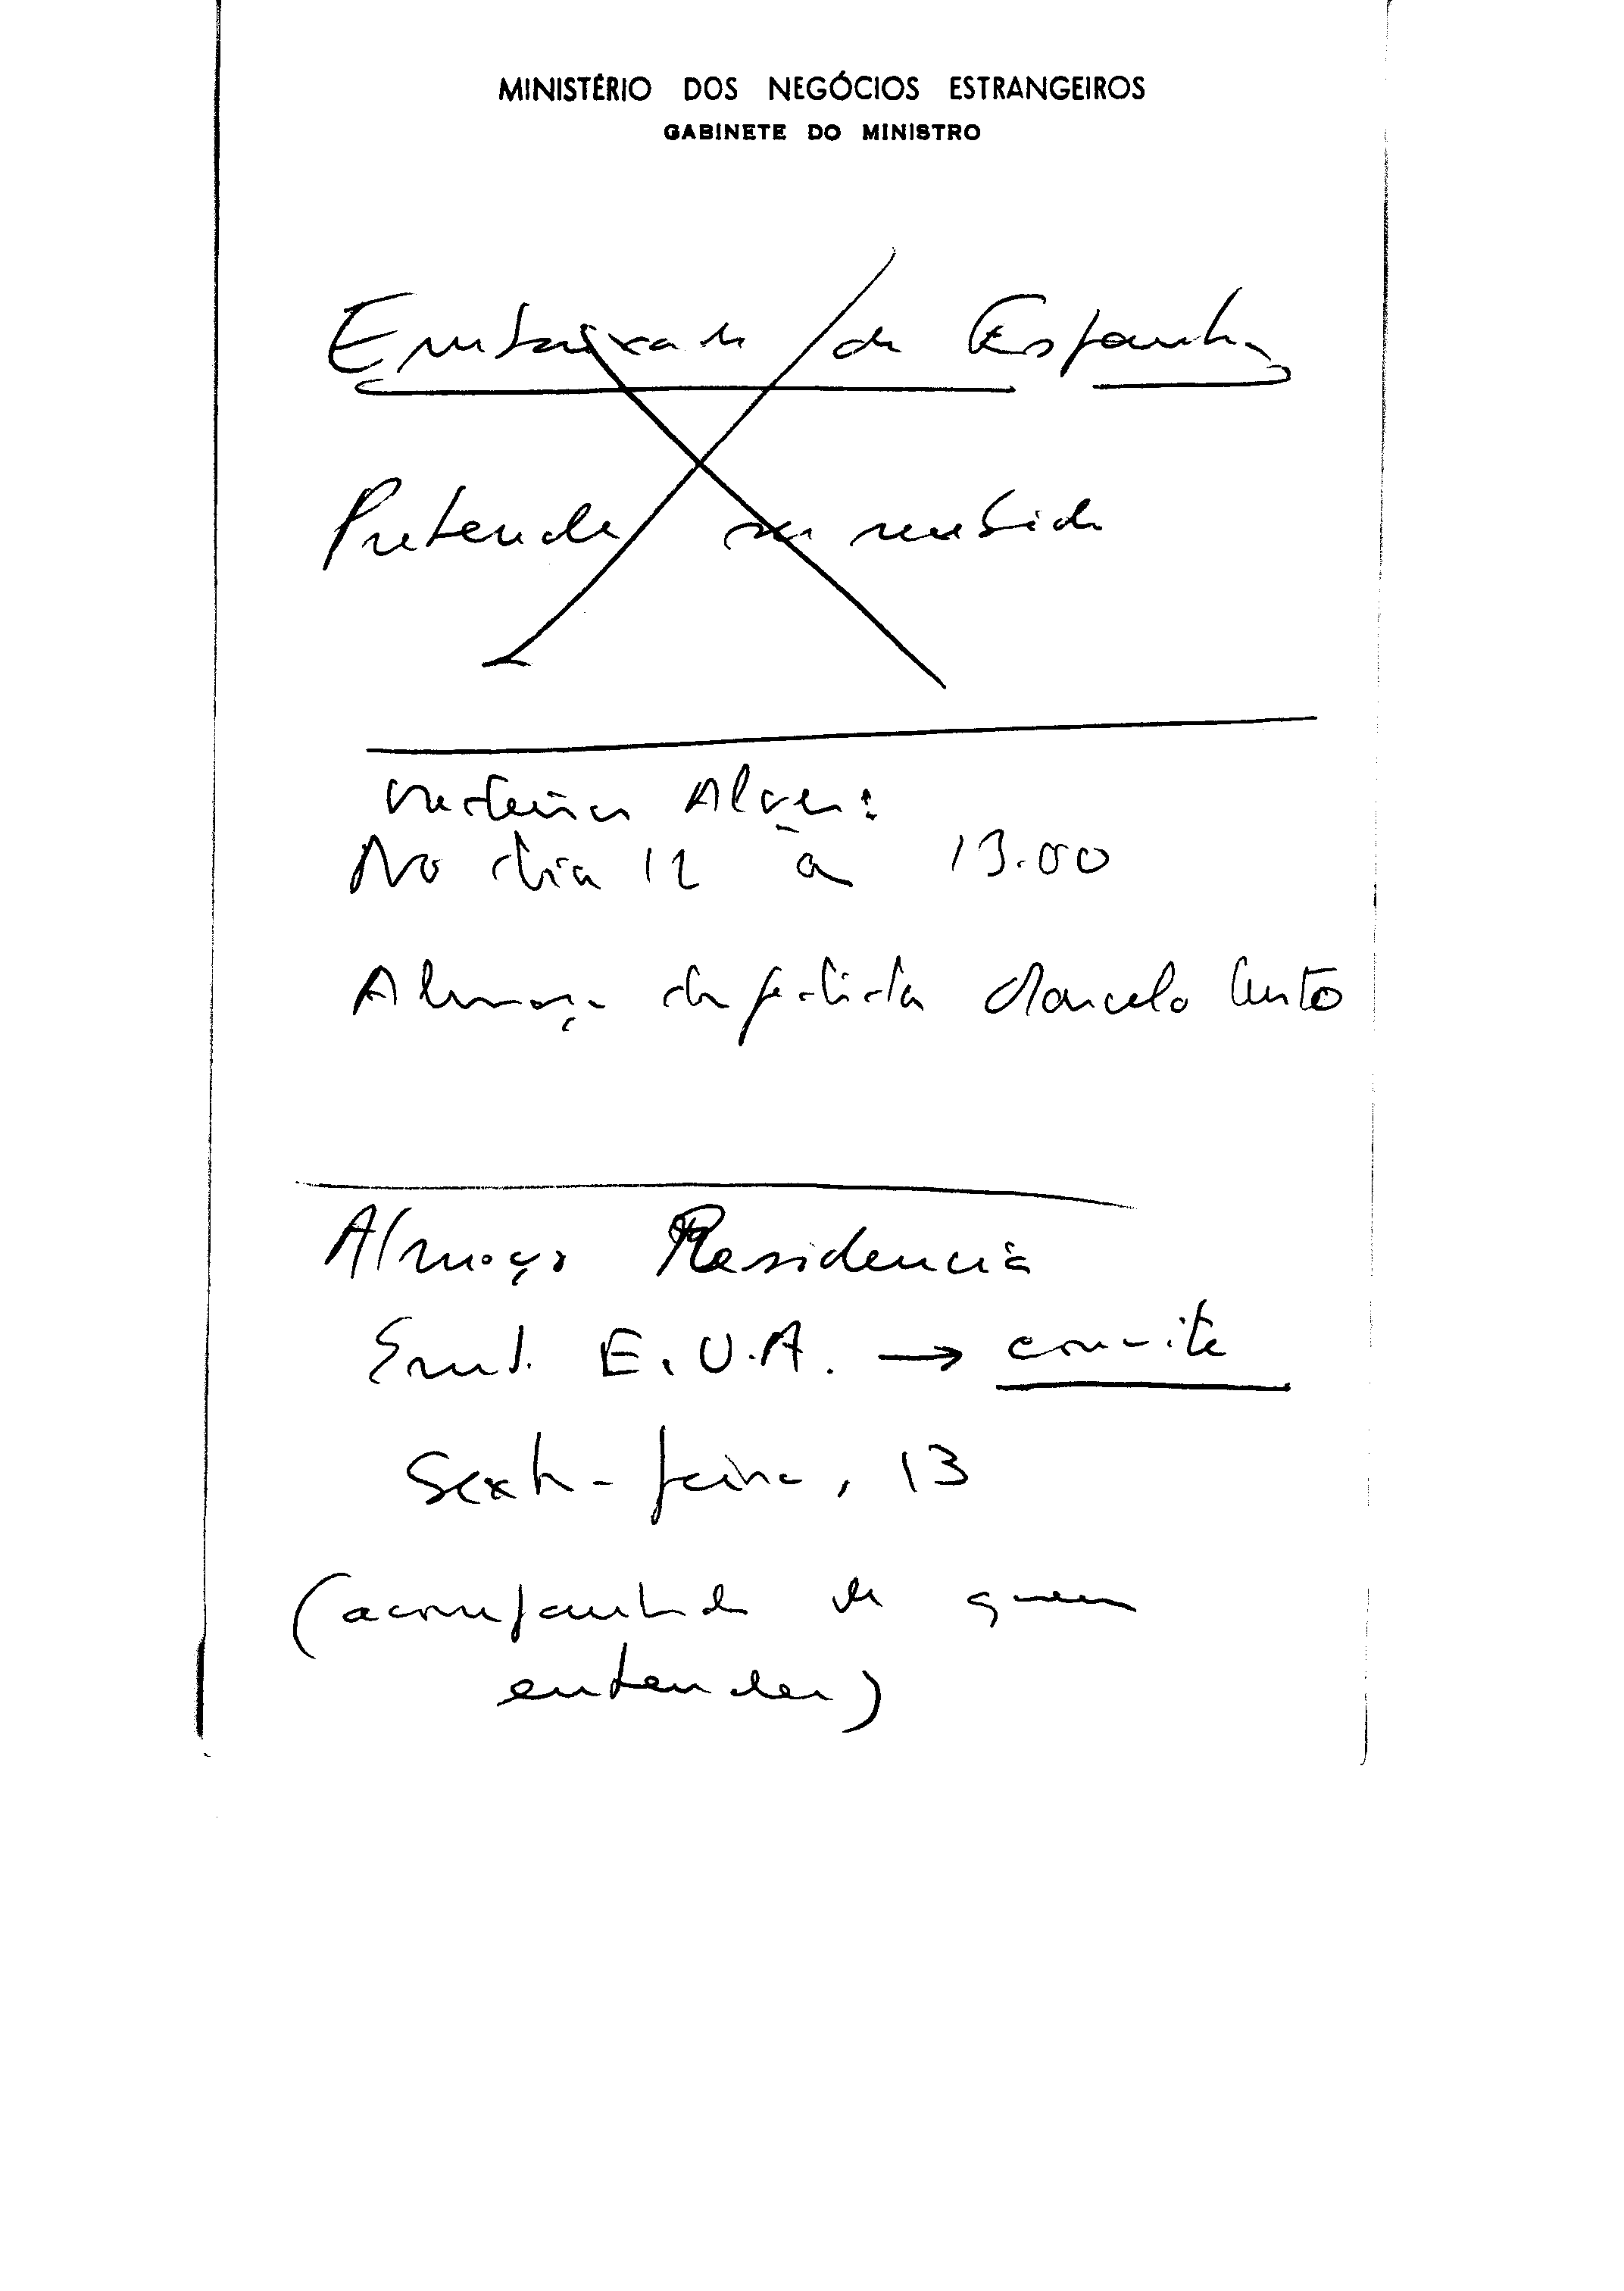 MINISTÉRIO DOS NEGÓCIOS ESTRANGEIROS
GABINETE DO MINISTRO
Embaixada de Espanha
Pretende ser recebido
Alves:
No dia 12 à 13.00
Almoço despedida Marcelo Curto
Almoço Residencia
Emb. E.U.A. → convite
Sexta-feira, 13
(acompanhado de quem
entender)